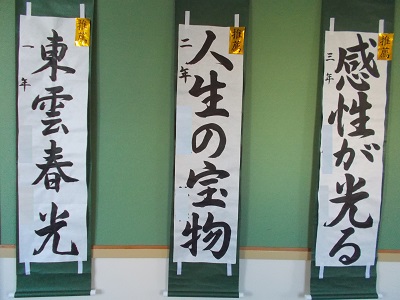 感性が光る
三年
推薦
人生の宝物
二年
推薦
東雲春光
一年
推薦